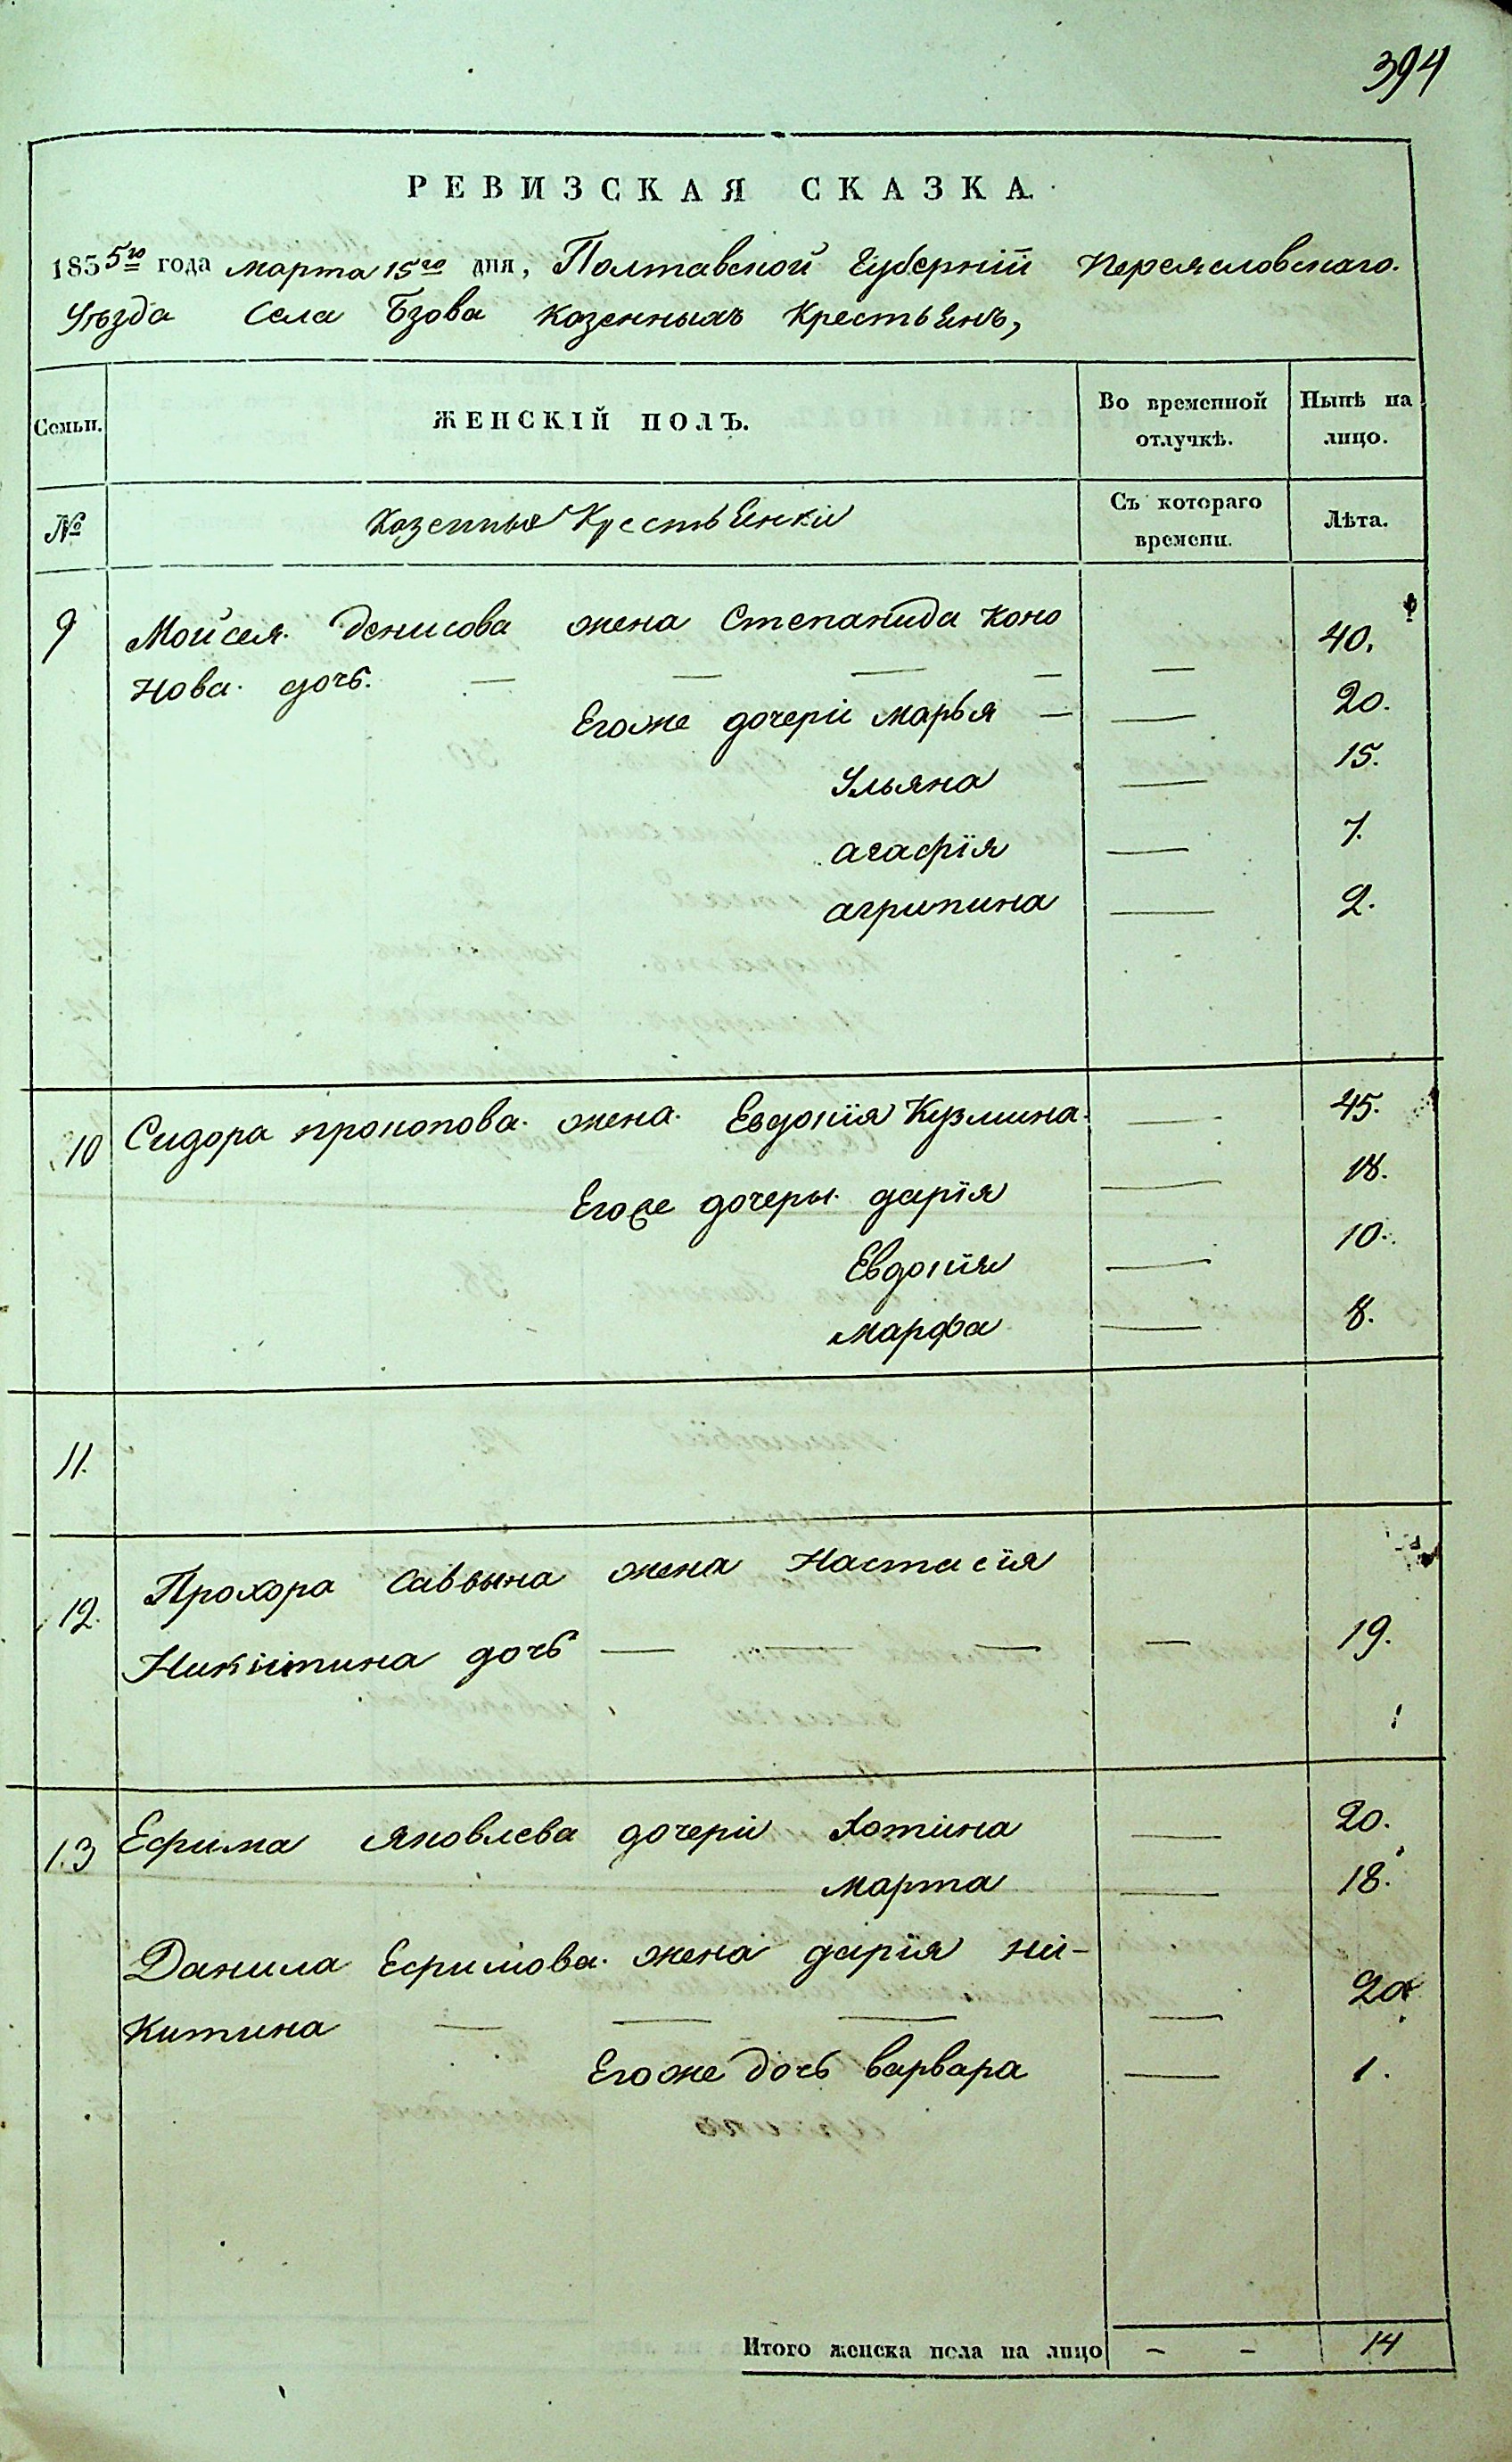 394
РЕВИЗСКАЯ СКАЗКА.
1855го года марта 15го дня, Полтавской Губерніи Переясловскаго.
Уѣзда Села Бзова казенныхъ Крестьянъ,
Семьи. ЖЕНСКІЙ ПОЛЪ. Во временной отлучкѣ. Нынѣ на лицо.
№ Казенные Крестьянки Съ котораго времени. Лѣта.
9 Мойсея Денисова жена Степанида Коно
нова дочь. — — — — — 40.
Егоже дочери марья — — 20.
Ульяна — 15.
агафія — 7.
агрипина — 2.
10 Сидора прокопова жена Евдокія Кузмина — 45.
Егоже дочеры дарія — 18.
Евдокія — 10.
марфа — 8.
11.
12. Прохора Саввына жена Настасія
Никитина дочь — — — — 19.
13 Ефима яковлева дочери Хотина — 20.
марта — 18.
Данила Ефимова жена дарія ни-
китина — — — — 20
Егоже дочь варвара — 1.
Итого женска пола на лицо - - 14